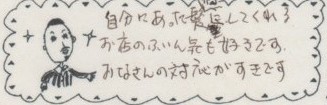 自分にあった髪にしてくれる
お店のふいん気も好きです。
みなさんの対応がすきです